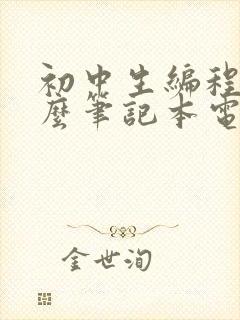 初中生编程
麼筆記本電
金世洵